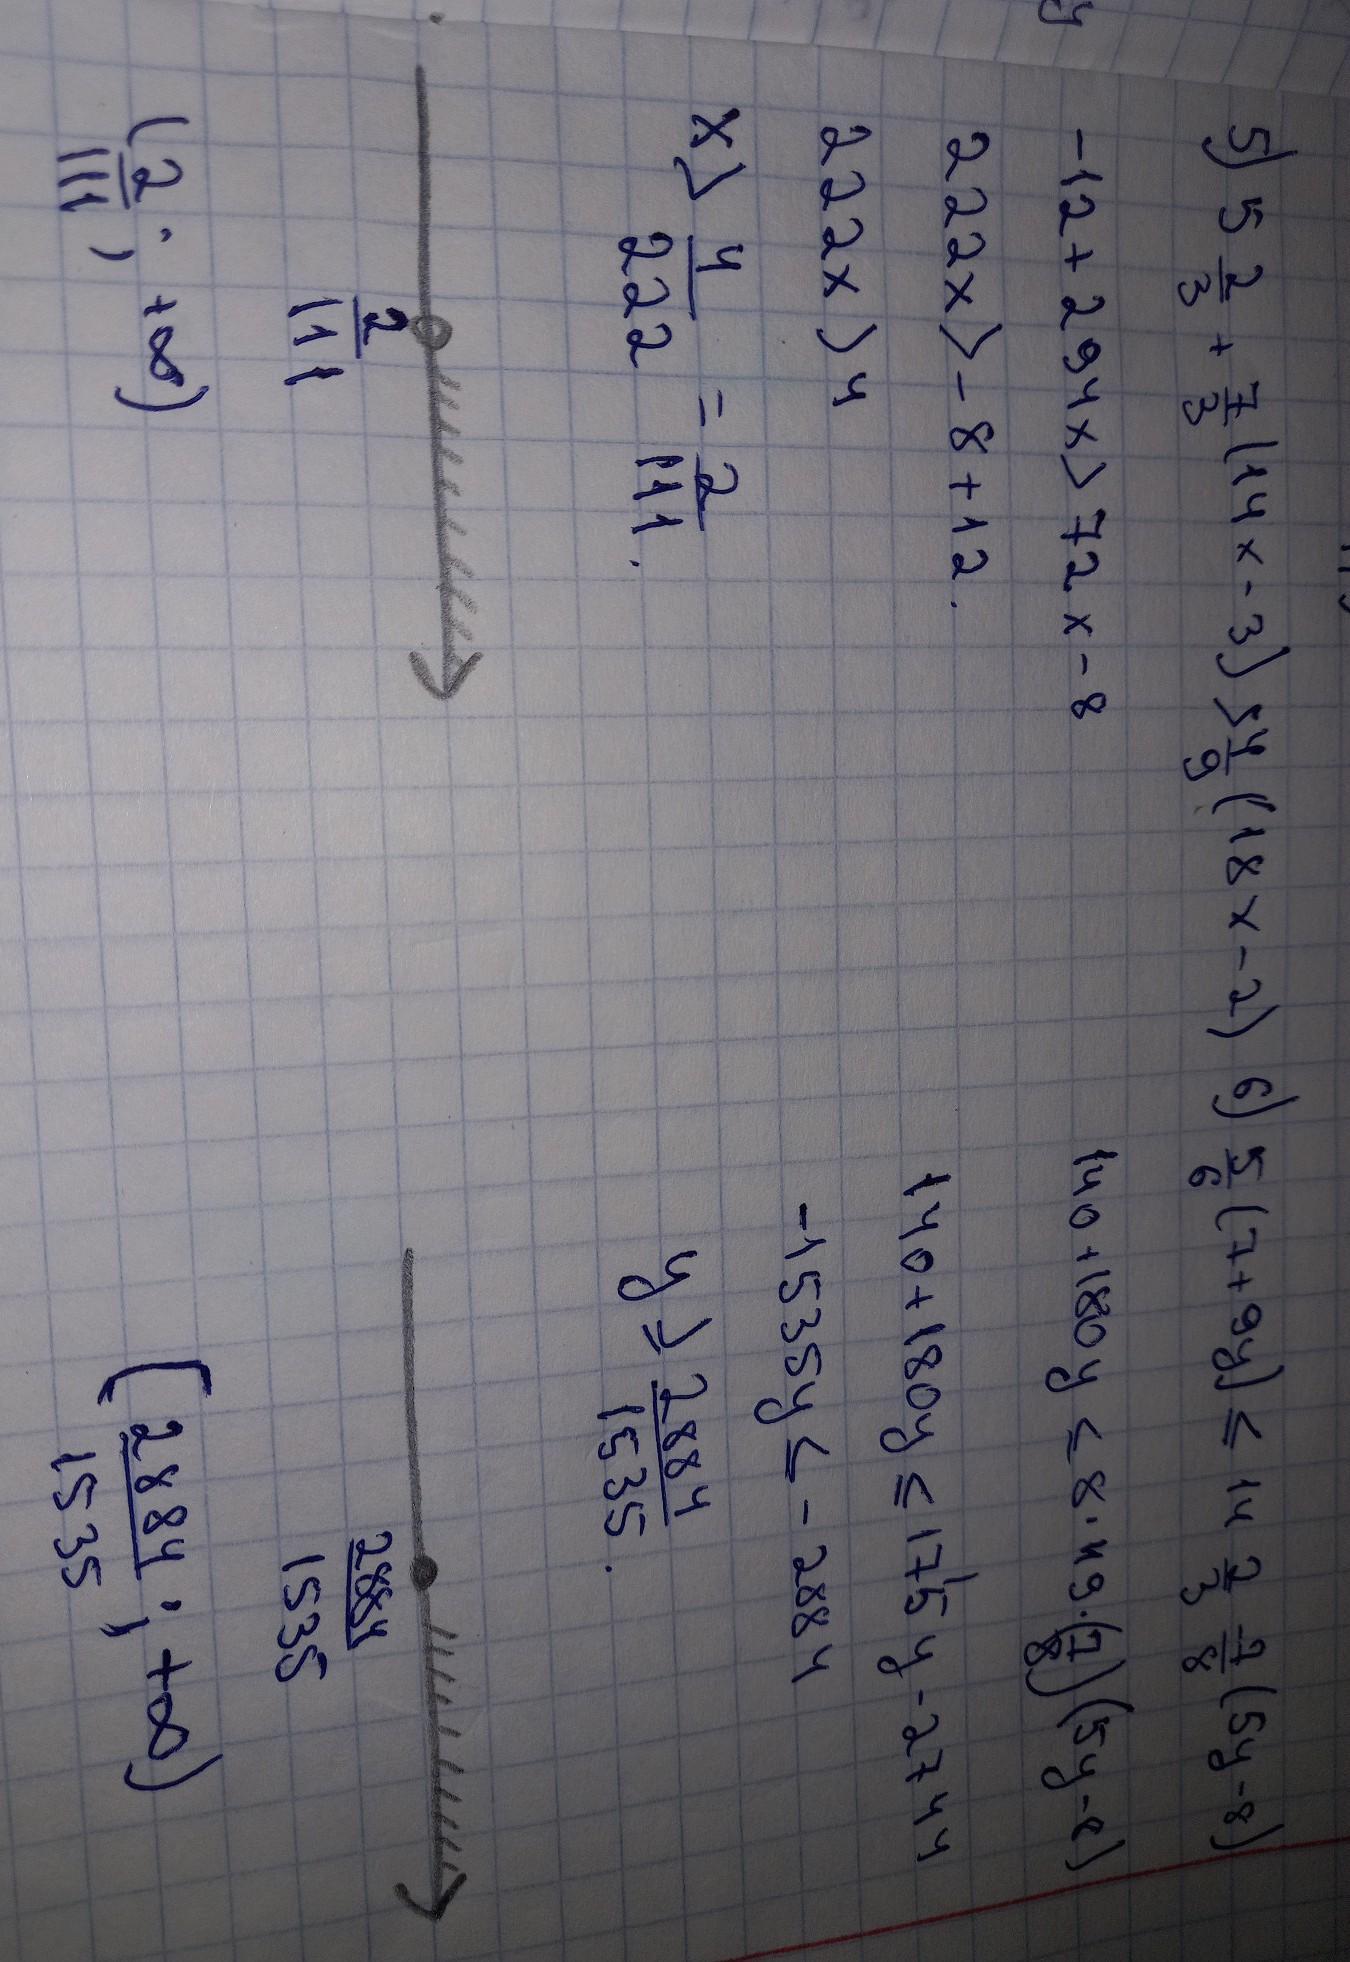 5) 5 2/3 + 7/3 (14x - 3) > 4/9 (18x - 2)
-12 + 294x > 72x - 8
222x > -8 + 12.
222x > 4
x > 4/222 = 2/111.
2/111
(2/111; +∞)
6) 5/6 (7 + 9y) ≤ 14 2/3 7/8 (5y - 8)
140 + 180y ≤ 8 · 49 · (7/8) (5y - 8)
140 + 180y ≤ 1715y - 2744
-1535y ≤ -2884
y ≥ 2884/1535.
2884/1535
[2884/1535; +∞)
y